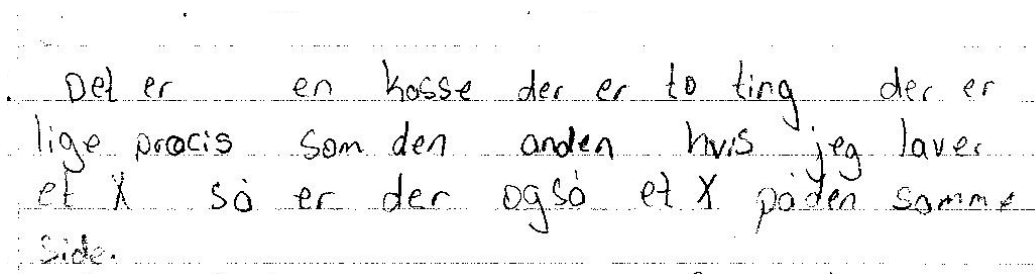 Det er en kasse der er to ting der er
lige præcis som den anden hvis jeg laver
et X så er der også et X på den samme
side.